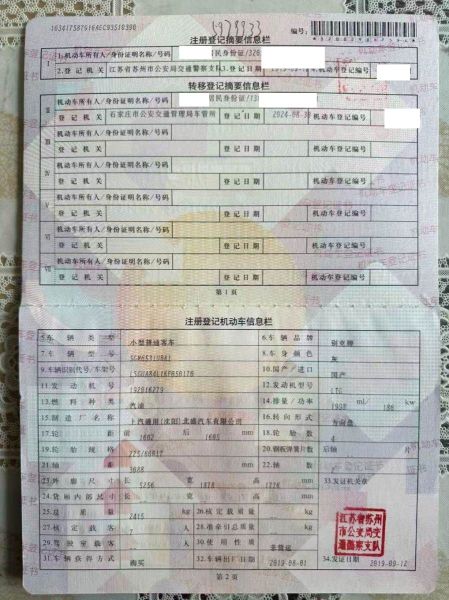 注册登记摘要信息栏
编号:
1.机动车所有人/身份证明名称/号码
居民身份证/320
2.登记机关 江苏省苏州市公安局交通警察支队 3.登记日期
转移登记摘要信息栏
机动车所有人/身份证明名称/号码 居民身份证/13
登记机关 石家庄市公安交通管理局车管所 登记日期 2024-08-30 机动车登记编号
机动车所有人/身份证明名称/号码
登记机关 登记日期 机动车登记编号
机动车所有人/身份证明名称/号码
登记机关 登记日期 机动车登记编号
机动车所有人/身份证明名称/号码
登记机关 登记日期 机动车登记编号
机动车所有人/身份证明名称/号码
登记机关 登记日期 机动车登记编号
机动车所有人/身份证明名称/号码
登记机关 登记日期 机动车登记编号
第1页
注册登记机动车信息栏
5.车辆类型 小型普通客车 6.车辆品牌 别克牌
7.车辆型号 SGM6531UBA1 8.车身颜色 灰
9.车辆识别代号/车架号 10.国产/进口 国产
11.发动机号 192016279 12.发动机型号 LTG
13.燃料种类 汽油 14.排量/功率 1998 ml/ 186 kw
15.制造厂名称 上汽通用(沈阳)北盛汽车有限公司 16.转向形式 方向盘
17.轮距 前 1662 后 1685 mm 18.轮胎数 4
19.轮胎规格 225/60R17 20.钢板弹簧片数 后轴
21.轴距 3088 mm 22.轴数 2
23.外廓尺寸 长 5256 宽 1878 高 1776 mm 33.发证机关章
24.货厢内部尺寸 长 宽 高 mm
25.总质量 2415 kg 26.核定载质量 kg
27.核定载客 7 人 28.准牵引总质量 kg
29.驾驶室载客 人 30.使用性质 非营运
江苏省苏州市公安局交通警察支队
31.车辆获得方式 购买 32.车辆出厂日期 2019-08-01 34.发证日期 2019-09-12
第2页